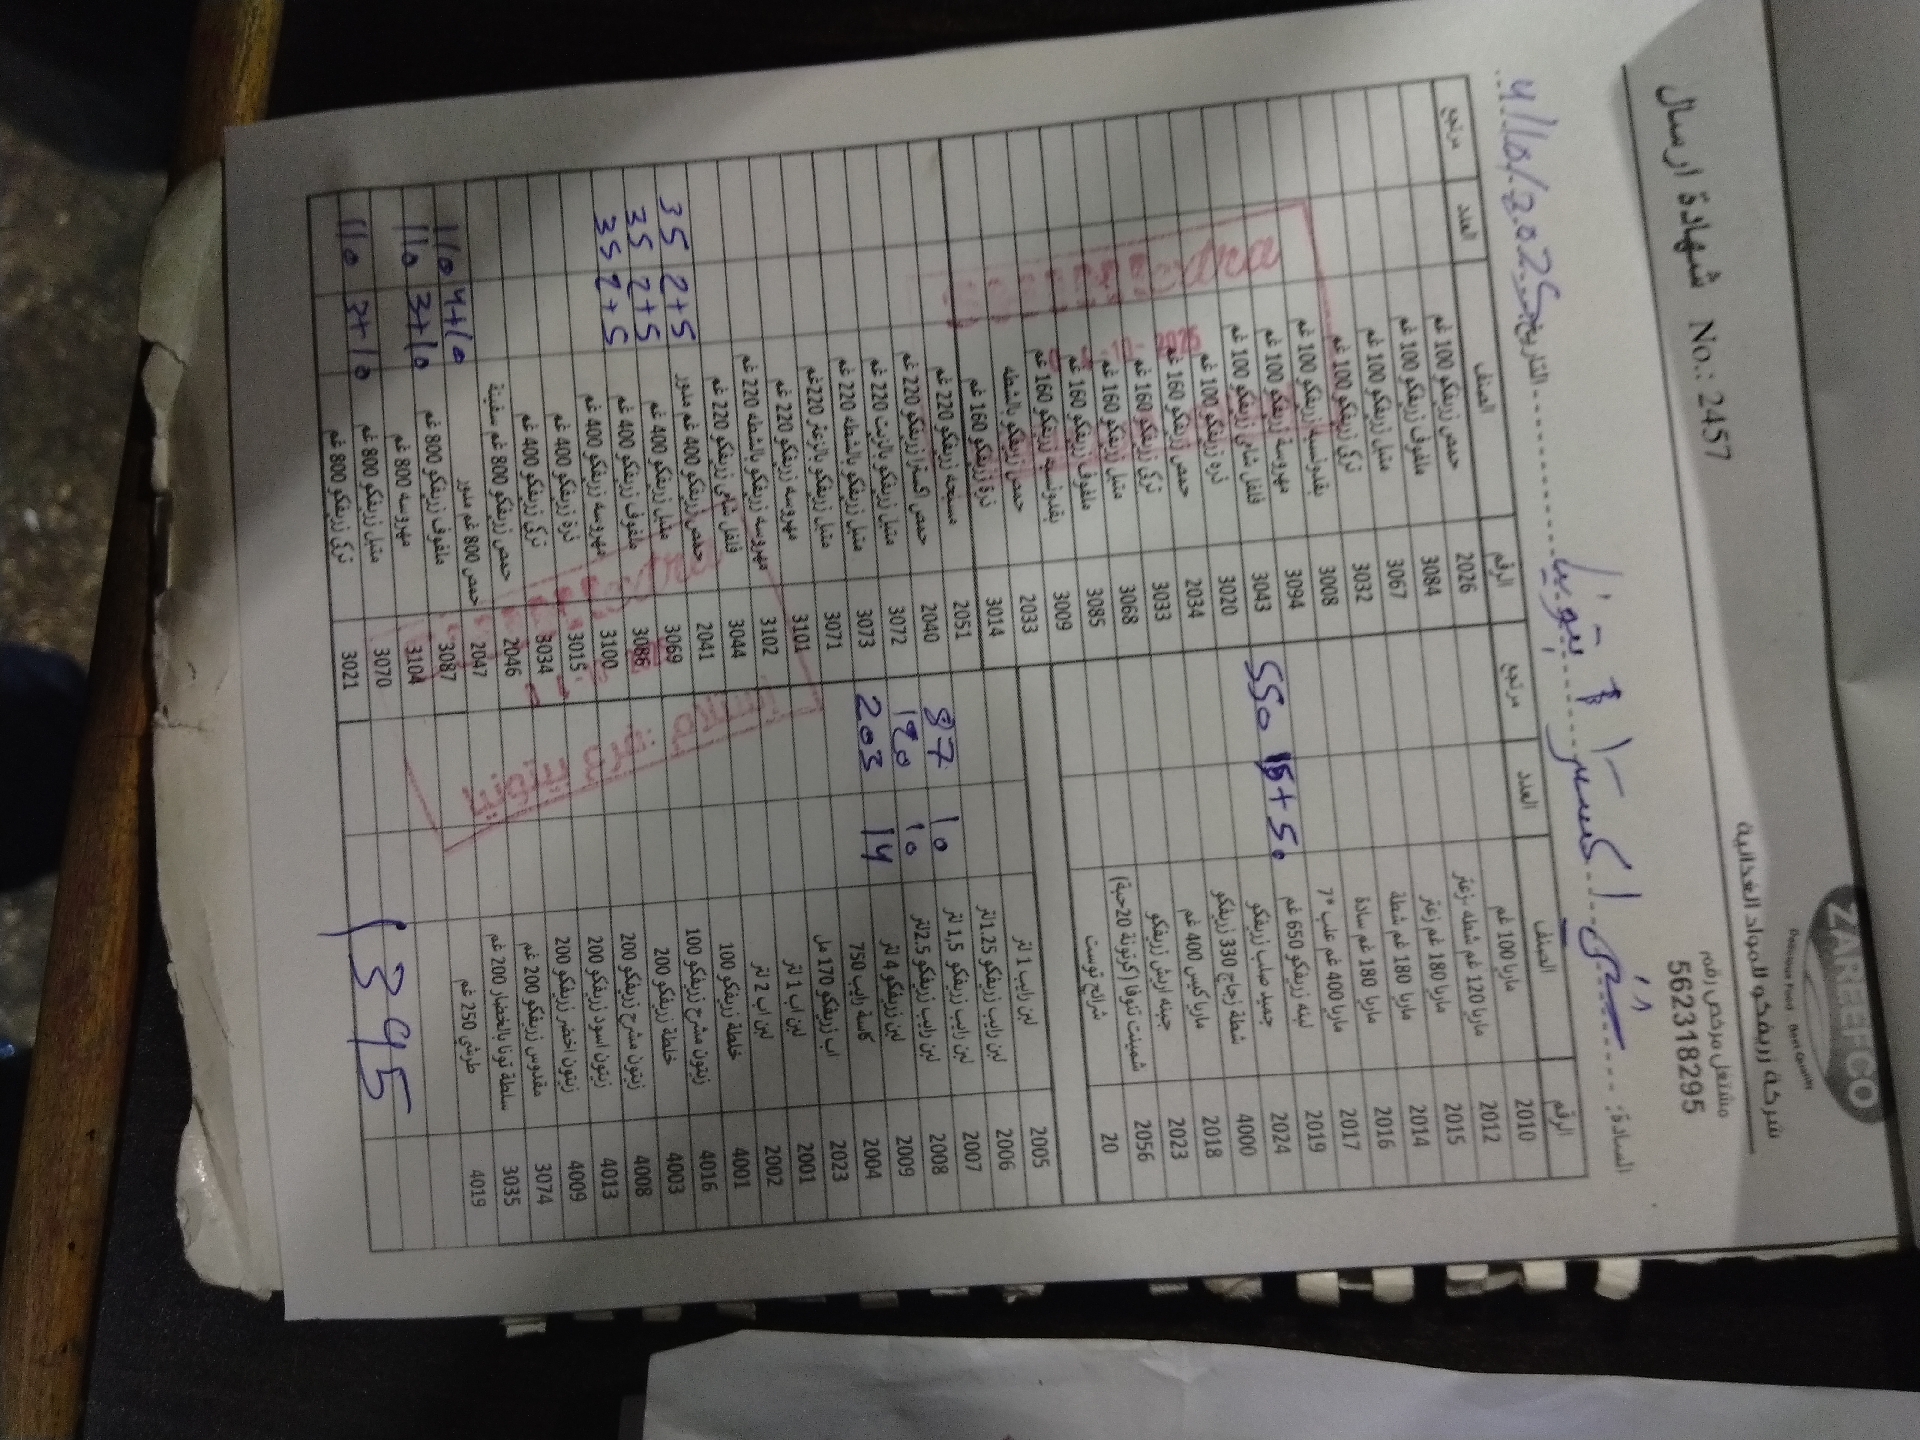 ZAREEFCO
Delicious Food Best Quality
شركة زريفكو للمواد الغذائية
مشتغل مرخص رقم
562318295
شهادة ارسال No.: 2457
السادة:
التاريخ: 4/10/2025
الرقم الصنف العدد مرتجع الرقم الصنف العدد مرتجع
2010 ماريا 100 غم 2026 حمص زريفكو 100 غم
2012 ماريا 120 غم شطة -زعتر 3084 ملفوف زريفكو 100 غم
2015 ماريا 180 غم زعتر 3067 متبل زريفكو 100 غم
2014 ماريا 180 غم شطة 3032 تركي زريفكو 100 غم
2016 ماريا 180 غم سادة 3008 بقدونسية زريفكو 100 غم
2017 ماريا 400 غم علب *7 3094 مهروسة زريفكو 100 غم
2019 لبنه زريفكو 650 غم 15+50 550 3043 فلفل شامي زريفكو 100 غم
2024 جميد صلب زريفكو 3020 ذرة زريفكو 100 غم
4000 شطة زجاج 330 زريفكو 2034 حمص زريفكو 160 غم
2018 ماريا كيس 400 غم 3033 تركي زريفكو 160 غم
2023 جبنه ارش زريفكو 3068 متبل زريفكو 160 غم
2056 شمينت تنوفا (كرتونة 20حبة) 3085 ملفوف زريفكو 160 غم
20 شرائح توست 3009 بقدونسيه زريفكو 160 غم
2033 حمص زريفكو بالشطه
2005 لبن رايب 1 لتر 3014 ذرة زريفكو 160 غم
2006 لبن رايب زريفكو 1.25لتر 2051 مسبحه زريفكو 220 غم
2007 لبن رايب زريفكو 1,5 لتر 10 87 2040 حمص اكسترا زريفكو 220 غم
2008 لبن رايب زريفكو 2.5لتر 10 190 3072 متبل زريفكو بالزيت 220 غم
2009 لبن زريفكو 4 لتر 14 203 3073 متبل زريفكو بالشطه 220 غم
2004 كاسة رايب 750 3071 متبل زريفكو بالزعتر 220غم
2023 اب زريفكو 170 مل 3101 مهروسه زريفكو 220 غم
2001 لبن اب 1 لتر 3102 مهروسه زريفكو بالشطه 220 غم
2002 لبن اب 2 لتر 3044 فلفل شامي زريفكو 220 غم
4001 خلطة زريفكو 100 2041 حمص زريفكو 400 غم مدور 2+5 35
4016 زيتون مشرح زريفكو 100 3069 متبل زريفكو 400 غم 2+5 35
4003 خلطة زريفكو 200 3086 ملفوف زريفكو 400 غم 2+5 35
4008 زيتون مشرح زريفكو 200 3100 مهروسه زريفكو 400 غم
4013 زيتون اسود زريفكو 200 3015 ذرة زريفكو 400 غم
4009 زيتون اخضر زريفكو 200 3034 تركي زريفكو 400 غم
3074 مقدوس زريفكو 200 غم 2046 حمص زريفكو 800 غم سفينة
3035 سلطة تونا بالخضار 200 غم 2047 حمص 800 غم مدور 4+10 110
4019 طرشي 250 غم 3087 ملفوف زريفكو 800 غم 3+10 110
3104 مهروسه 800 غم
3070 متبل زريفكو 800 غم 3+10 110
3021 تركي زريفكو 800 غم
1395